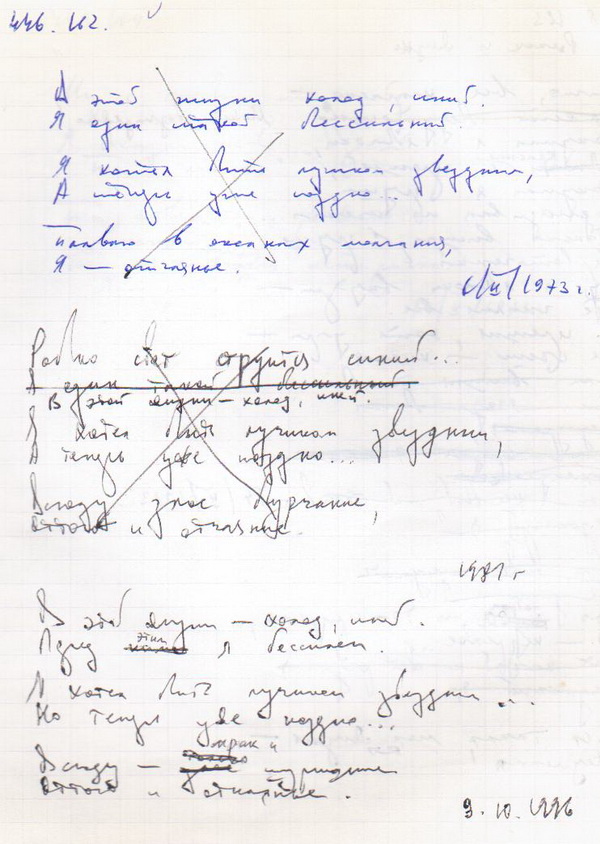 446. 162.
А этой жизни холод, иней.
Я один такой бессильный.
Я хотел быть лучиком звездным,
А теперь уже поздно...
Плаваю в океанах молчания,
Я — отчаянье.
1973 г.
Робко свет струится синий...
Я один такой бессильный.
В этой жизни — холод, иней.
Я хотел быть лучиком звездным,
А теперь уже поздно...
Всюду злое журчание,
и отчаяние.
1981 г
В этой жизни — холод, иней.
этим
Перед я бессилен.
Я хотел быть лучиком звездным...
Но теперь уже поздно...
мрак и
Всюду —
и отчаянье.
9. 10. 1996